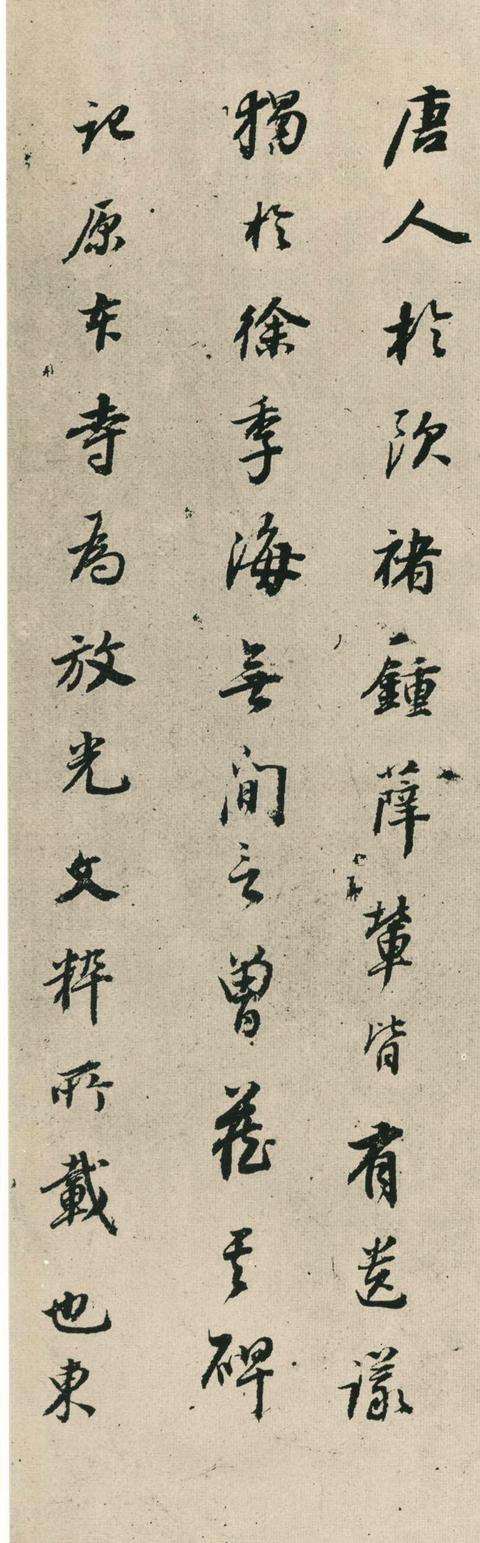 唐人於欧褚鍾薛輩皆有遺議
獨於徐季海無間言曾藏其碑
記原本寺為放光文粹所載也東